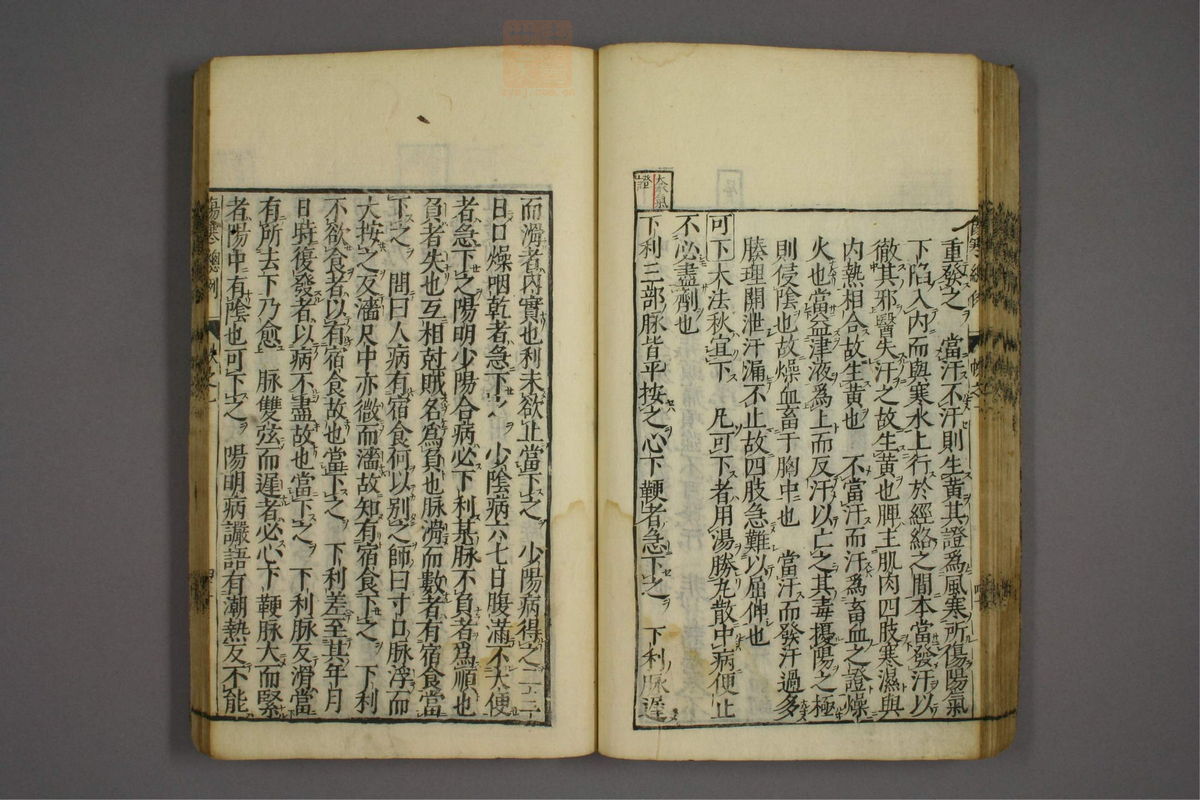 重發之 當汗不汗則生黃其證爲風寒所傷陽氣
下陷入內而與寒水上行於經絡之間本當發汗以
徹其邪醫失汗之故生黃也脾主肌肉四肢寒濕與
內熱相合故生黃也 不當汗而汗爲畜血之證燥
火也當益津液爲上而反汗以亡之其毒擾陽之極
則侵陰也故燥血畜于胸中也 當汗而發汗過多
腠理開泄汗漏不止故四肢急難以屈伸也
可下大法秋宜下 凡可下者用湯勝丸散中病便止
不必盡劑也
下利三部脉皆平按之心下鞕者急下之 下利脉遲
而滑者內實也利未欲止當下之 少陽病得之二三
日口燥咽乾者急下之 少陰病六七日腹滿不大便
者急下之陽明少陽合病必下利其脉不負者爲順也
負者失也互相尅賊名爲負也脉滑而數者有宿食當
下之 問曰人病有宿食何以別之師曰寸口脉浮而
大按之反濇尺中亦微而濇故知有宿食下之 下利
不欲食者以有宿食故也當下之 下利差至其年月
日時復發者以病不盡故也當下之 下利脉反滑當
有所去下乃愈 脉雙弦而遲者必心下鞕脉大而緊
者陽中有陰也可下之 陽明病讝語有潮熱反不能
傷寒總例